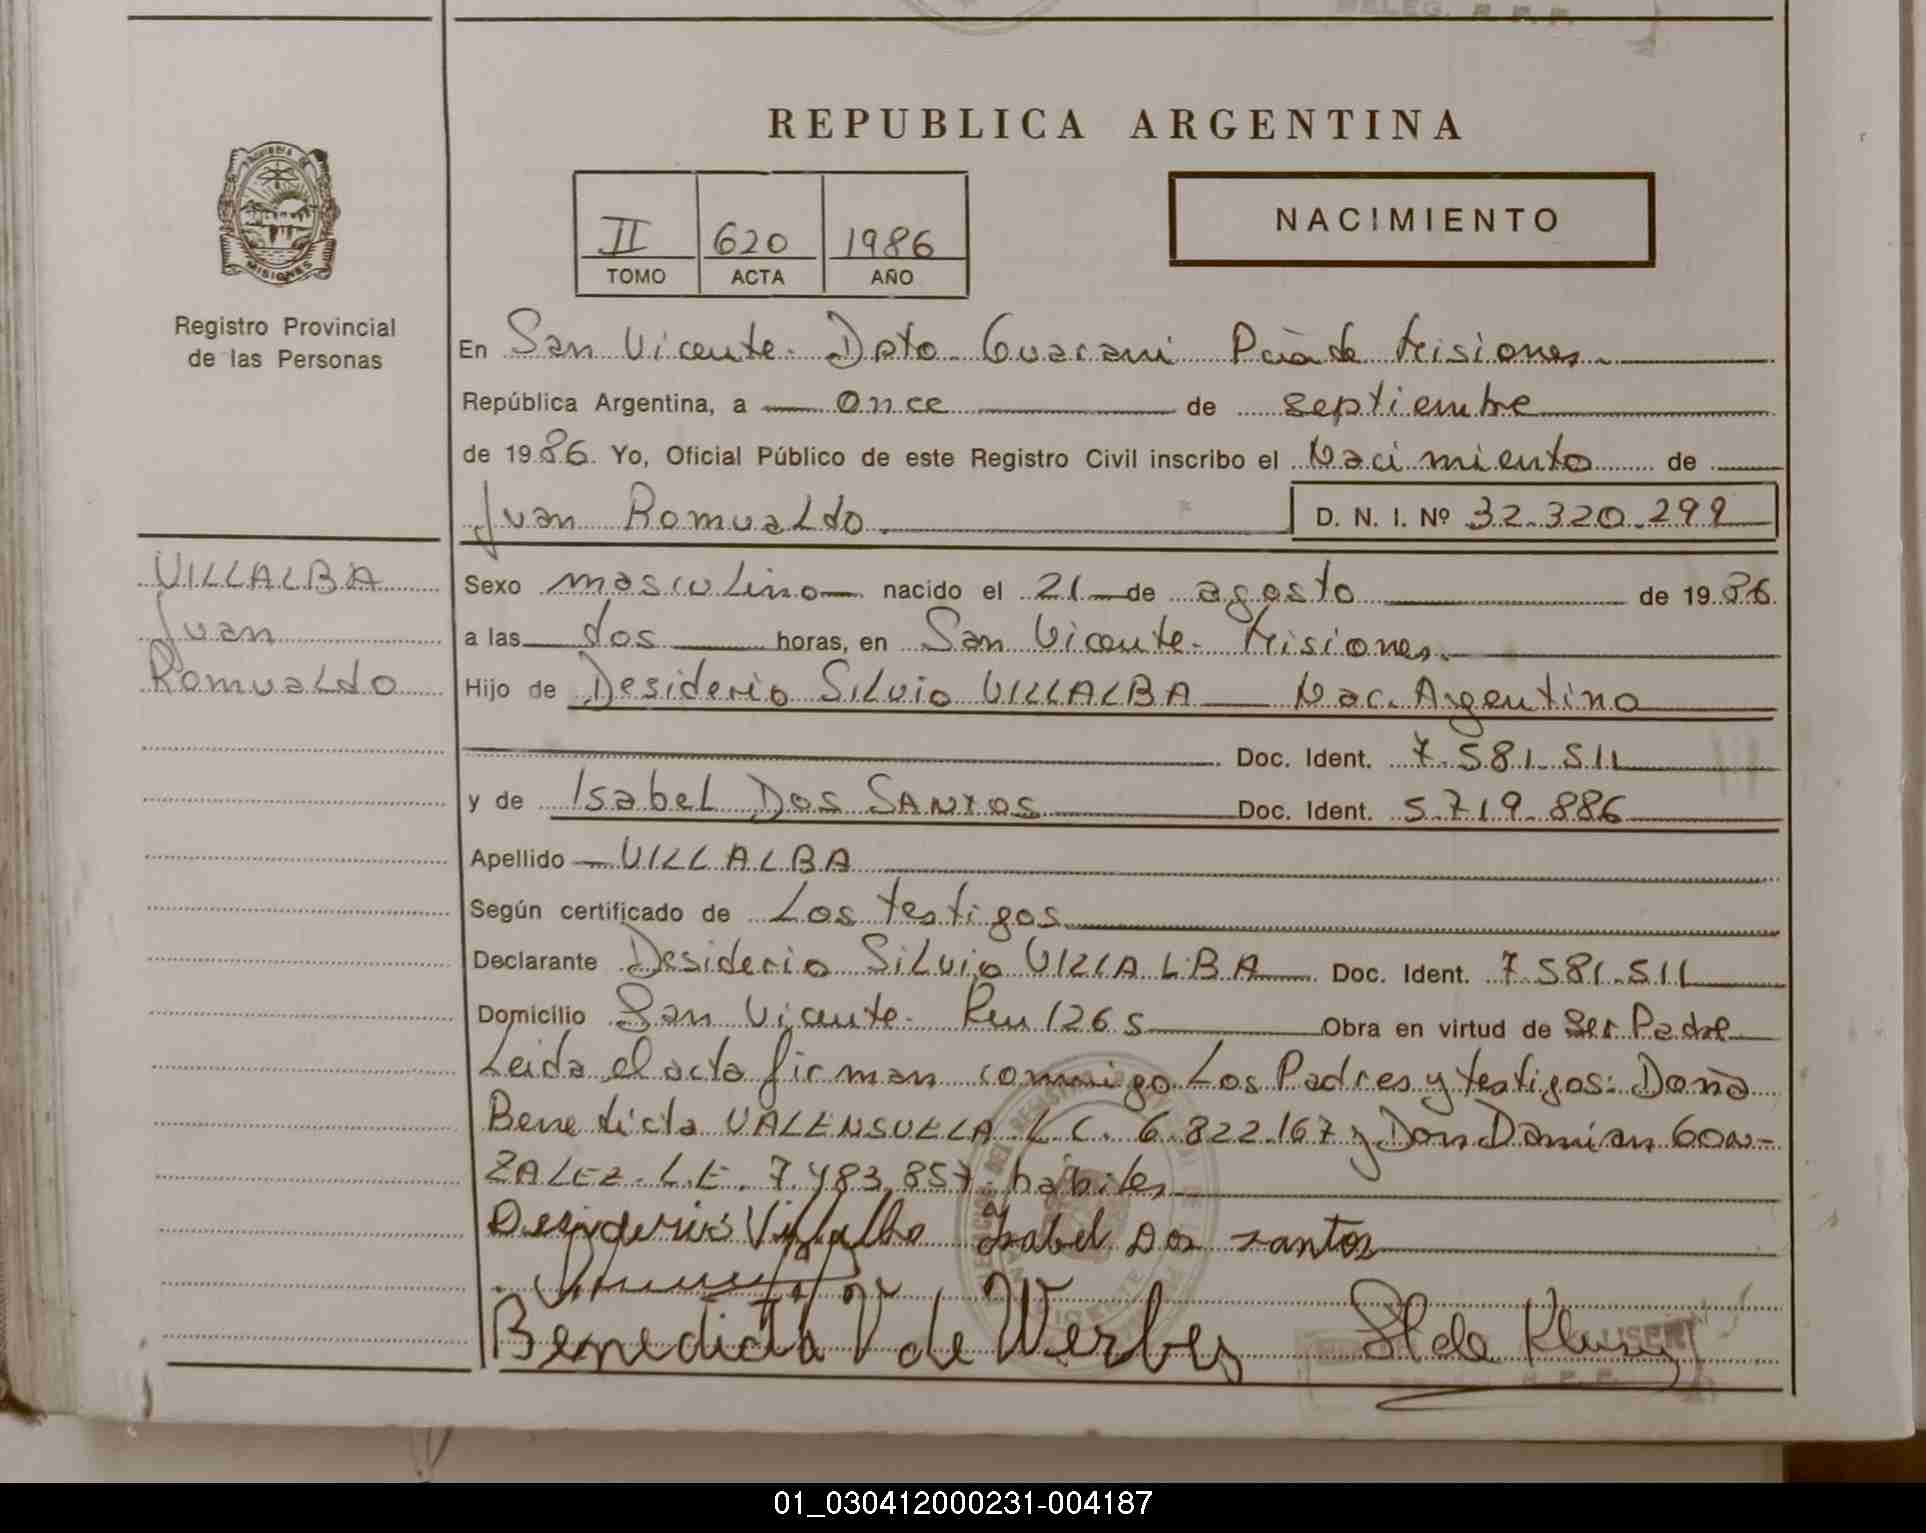 REPUBLICA ARGENTINA
PROVINCIA DE
MISIONES
Registro Provincial
de las Personas
II 620 1986
TOMO ACTA AÑO
NACIMIENTO
En San Vicente - Dpto Guarani Pcia de Misiones.
República Argentina, a once de septiembre
de 1986. Yo, Oficial Público de este Registro Civil inscribo el Nacimiento de
Juan Romualdo D. N. I. Nº 32.320.299
VILLALBA
Juan
Romualdo
Sexo masculino nacido el 21 de agosto de 1986.
a las dos horas, en San Vicente - Misiones.
Hijo de Desiderio Silvio VILLALBA Nac. Argentino
Doc. Ident. 7.581.511
y de Isabel Dos SANTOS Doc. Ident. 5.719.886
Apellido VILLALBA
Según certificado de Los testigos
Declarante Desiderio Silvio VILLALBA Doc. Ident. 7.581.511
Domicilio San Vicente - Km 1265 Obra en virtud de Ser Padre
Leida el acta firman conmigo Los Padres y testigos: Doña
Benedicta VALENSUELA L.C. 6.822.167 y Don Damian GON-
ZALEZ. L.E. 7.483.857. habiles
Desiderio Villalba Isabel Dos santos
Benedicta V de Werbes
01_030412000231-004187